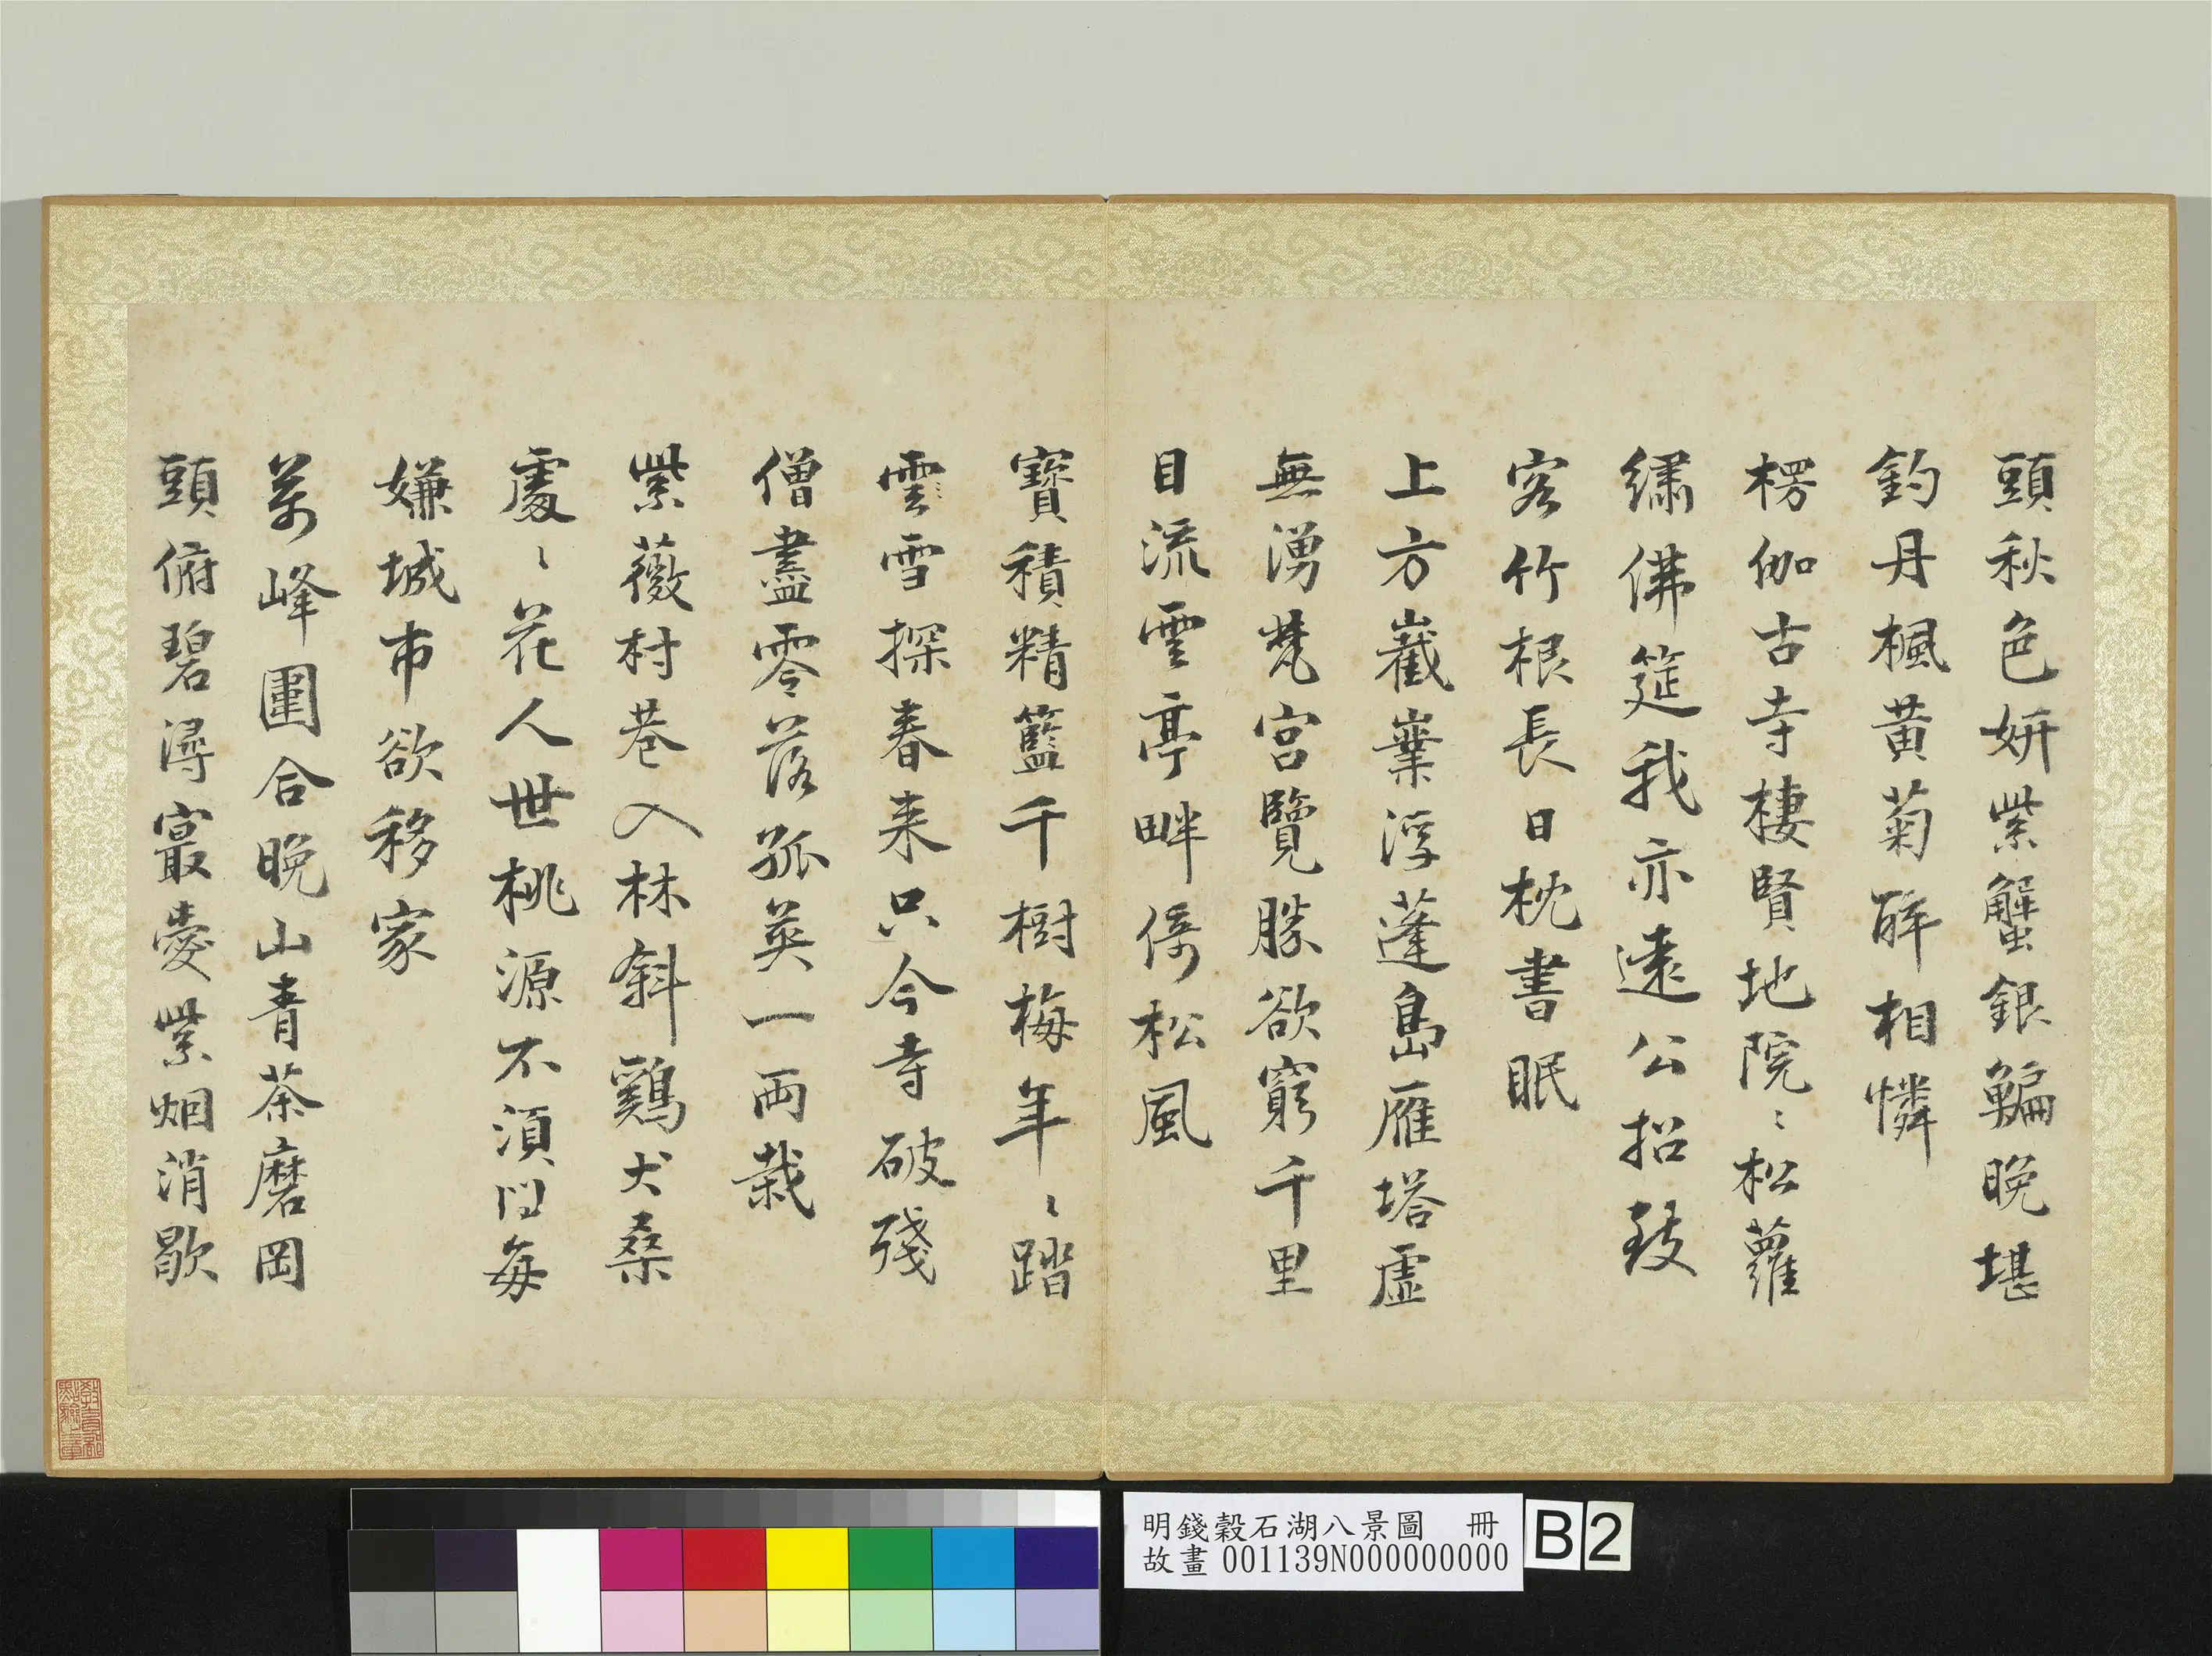 頭秋色妍紫蟹銀鯿晚堪
釣丹楓黄菊醉相憐
楞伽古寺棲賢地院〻松蘿
繡佛筵我亦遠公招致
客竹根長日枕書眠
上方嶻嶪浮蓬島雁塔虛
無湧梵宮覽勝欲窮千里
目流雲亭畔倚松風
寶積精籃千樹梅年〻踏
雲雪探春来只今寺破殘
僧盡零落孤英一兩栽
紫薇村巷入林斜鷄犬桑
處〻花人世桃源不須問每
嫌城市欲移家
萬峰圍合晚山青茶磨岡
頭俯碧潯寂愛紫烟消歇
明錢穀石湖八景圖 冊
故畫 001139N000000000
B2